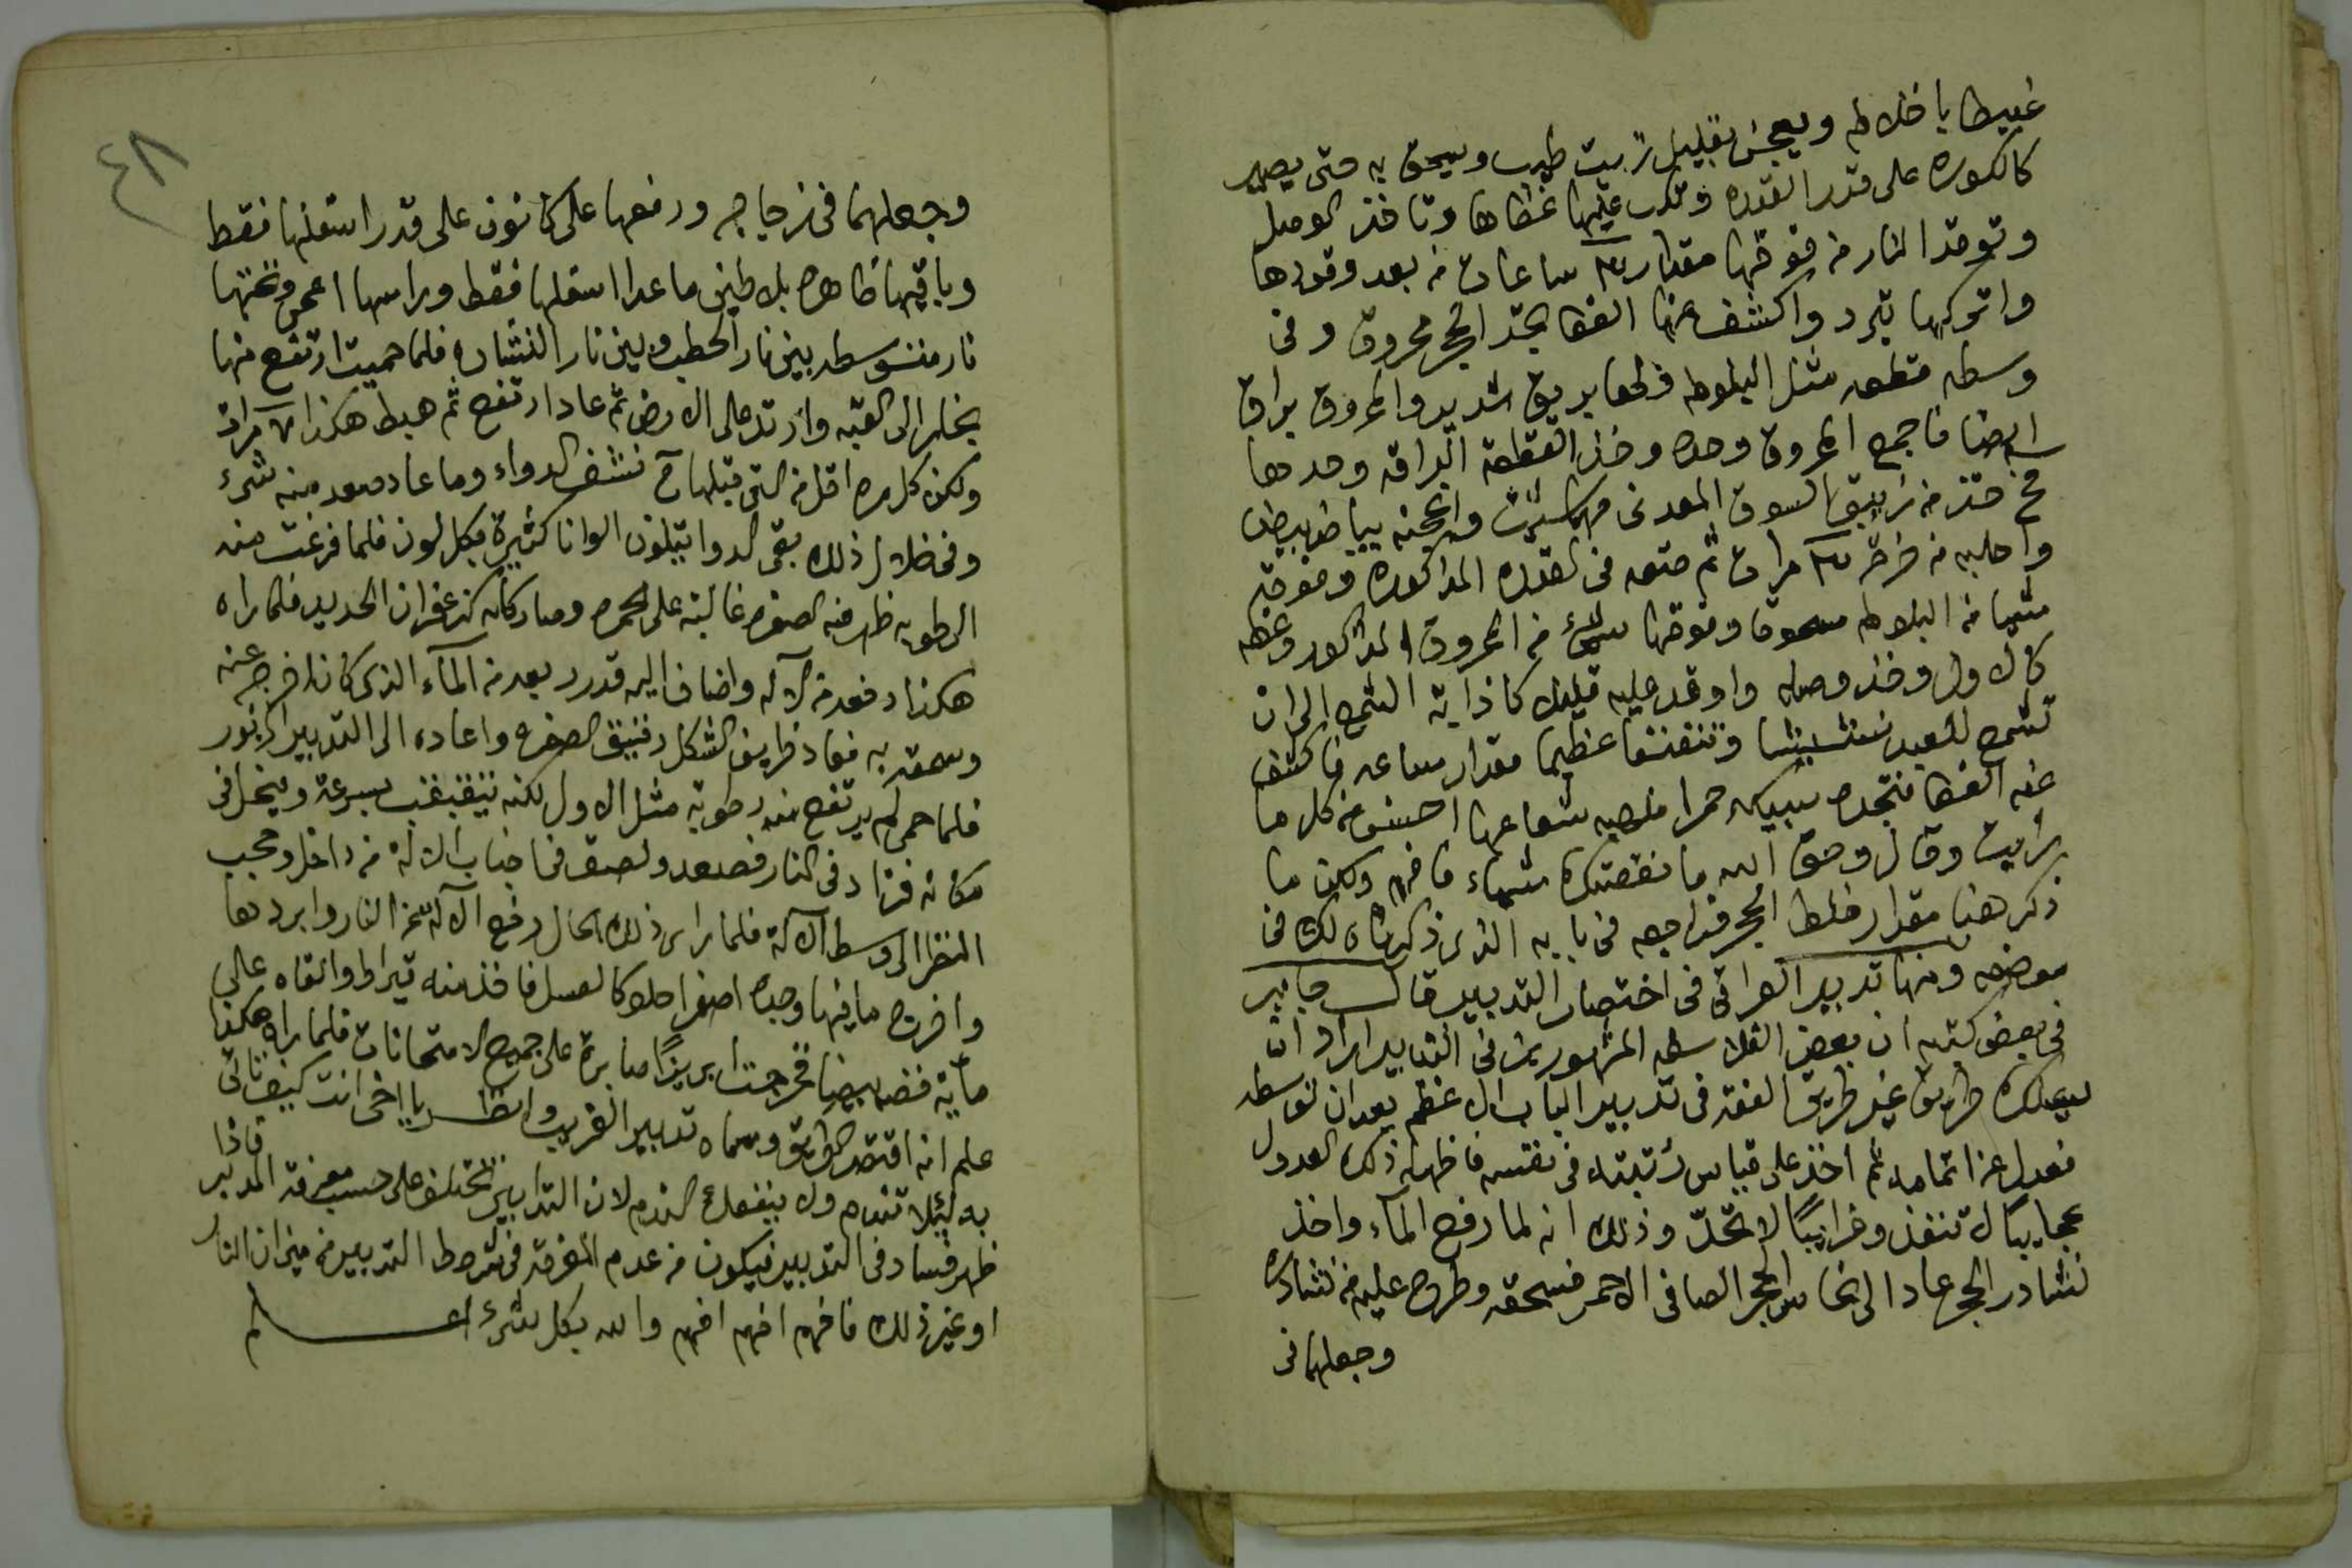 غبيطا باخلاطه ويعجن بقليل زيت طيب ويسحق به حتى يصير
كالكوره على قدر القدره وتكب عليها غطاها وتاخذ الوصل
وتوقد النار من فوقها مقدار ٣ ساعات من بعد وقودها
واتركها تبرد واكشف عنها الغطا تجد الحجر محروق وفى
وسطه قطعه مثل البلوطه ولها بريق شديد والمحروق براق
ايضا فاجمع المحروق وحده وخذ القطعة البراقه وحدها
ثم خذ من زيبق السوق المعدنى مهما شئت واعجنه ببياض بيض
واحلبه من خرقه ٣ مرات ثم ضعه فى القدره المذكوره وفوقه
شيا من البلوطه مسحوق وفوقها شئ من المحروق المذكور وغطه
كالاول وخذ وصله واوقد عليه قليلا كاذابة الشمع الى ان
تسمع للعبد نشيشا وتنفنفا عظيما مقدار ساعه فاكشف
عنه الغطا فتجده سبيكه حمرا ذهبيه شعاعها احسن من كل ما
رايت وقال وحق الله ما نقصتك شياء فافهم ولكن ما
ذكر هنا مقدار خلط الحجر فراجعه فى بابه الذى ذكرناه لك فى
موضعه ومنها تدبير العراقى فى اختصار التدبير قال جابر
فى بعض كتبه ان بعض الفلاسفه المشهورين فى التدابير اراد ان
يسلك طريق غير طريق الفقه فى تدبير الباب الاعظم بعد ان توسطه
فعدل عن اتمامه ثم اخذ على قياس رتبته فى نفسه فاظهر له ذلك العدول
عجايبًا لا تنفذ وغرايبًا لا تحدّ وذلك انه لما رفع الماء واخذ
نشادر الحجر عاد الى نحاس الحجر الصافى الاحمر فسحقه وطرح عليه من نشادره
وجعلهما فى
٤٨
وجعلهما فى زجاجه ورفعها على كانون على قدر اسفلها فقط
وباقيها ظاهره بلا طين ما عدا اسفلها فقط وراسها اعمى وتحتها
نار متوسطه بين نار الحطب وبين نار النشاره فلما حميت ارتفع منها
بخار الى القبه وارتد على الارض ثم عاد ارتفع ثم هبط هكذا ٧ مرات
ولكن كل مره اقل من التى قبلها ثم نشف الدواء وما عاد صعد منه شئ
وفى خلال ذلك بقى الدوا يتلون الوانا كثيرة بكل لون فلما فرغت منه
الرطوبه ظهر فيه الصفره غالبة على الحمره وصار كانه كزعفران الحديد فلما راه
هكذا دفعه من الاله واضاف اليه قدر ربعه من المآء الذى كان اخرجه عنه
وسحقه به فعاد ظريف الشكل رقيق الصفره واعاده الى التدبير المزبور
فلما حمى لم يرتفع منه رطوبة مثل الاول لكنه يتقبقب بسرعة وينحل فى
مكانه فزاد فى النار فصعد ولصق فى اجناب الالة من داخل وحجب
النظر الى وسط الآلة فلما راى ذلك الحال رفع الآلة عن النار وابردها
واخرج ما فيها وجده اصفرا حلوا كالعسل فاخذ منه قيراط والقاه على
ماية فضه بيضا فخرجت ابريزًا صابرة على جميع الامتحانات فلما راه هكذا
علم انه اقتصد الطريق وسماه تدبير الغريب وانظر يا اخى انت كيف تاتى
به لئلا تندم ولا ينفعك الندم لان التدابير تختلف على حسب معرفة المدبر فاذا
ظهر فساد فى التدبير فيكون من عدم المعرفة فى شروط التدبير من ميزان النار
او غير ذلك فافهم افهم افهم والله بكل شئ اعلم